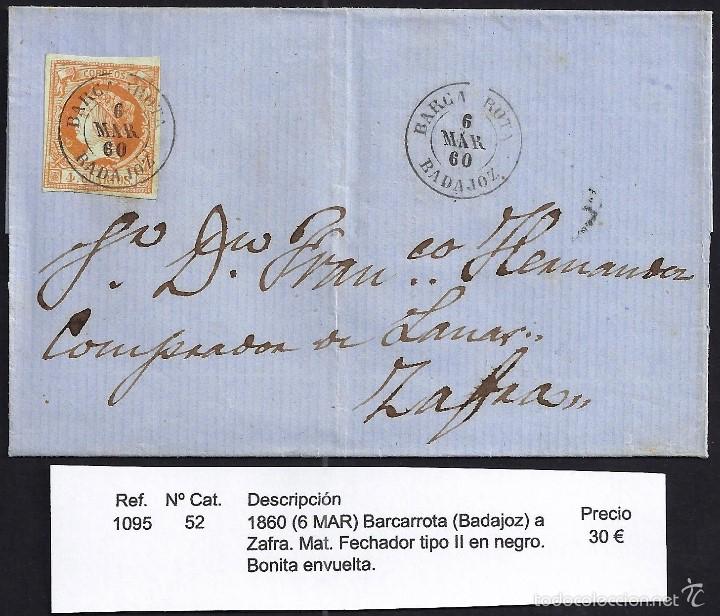 CORREOS
BARCA ROTA
6
MAR
60
BADAJOZ
BARCA ROTA
6
MAR
60
BADAJOZ.
Sr. Dn. Fran.co Hernandez
Comprador de Lanas
Zafra
Ref. Nº Cat. Descripción Precio
1095 52 1860 (6 MAR) Barcarrota (Badajoz) a 30 €
Zafra. Mat. Fechador tipo II en negro.
Bonita envuelta.
todocoleccion.net